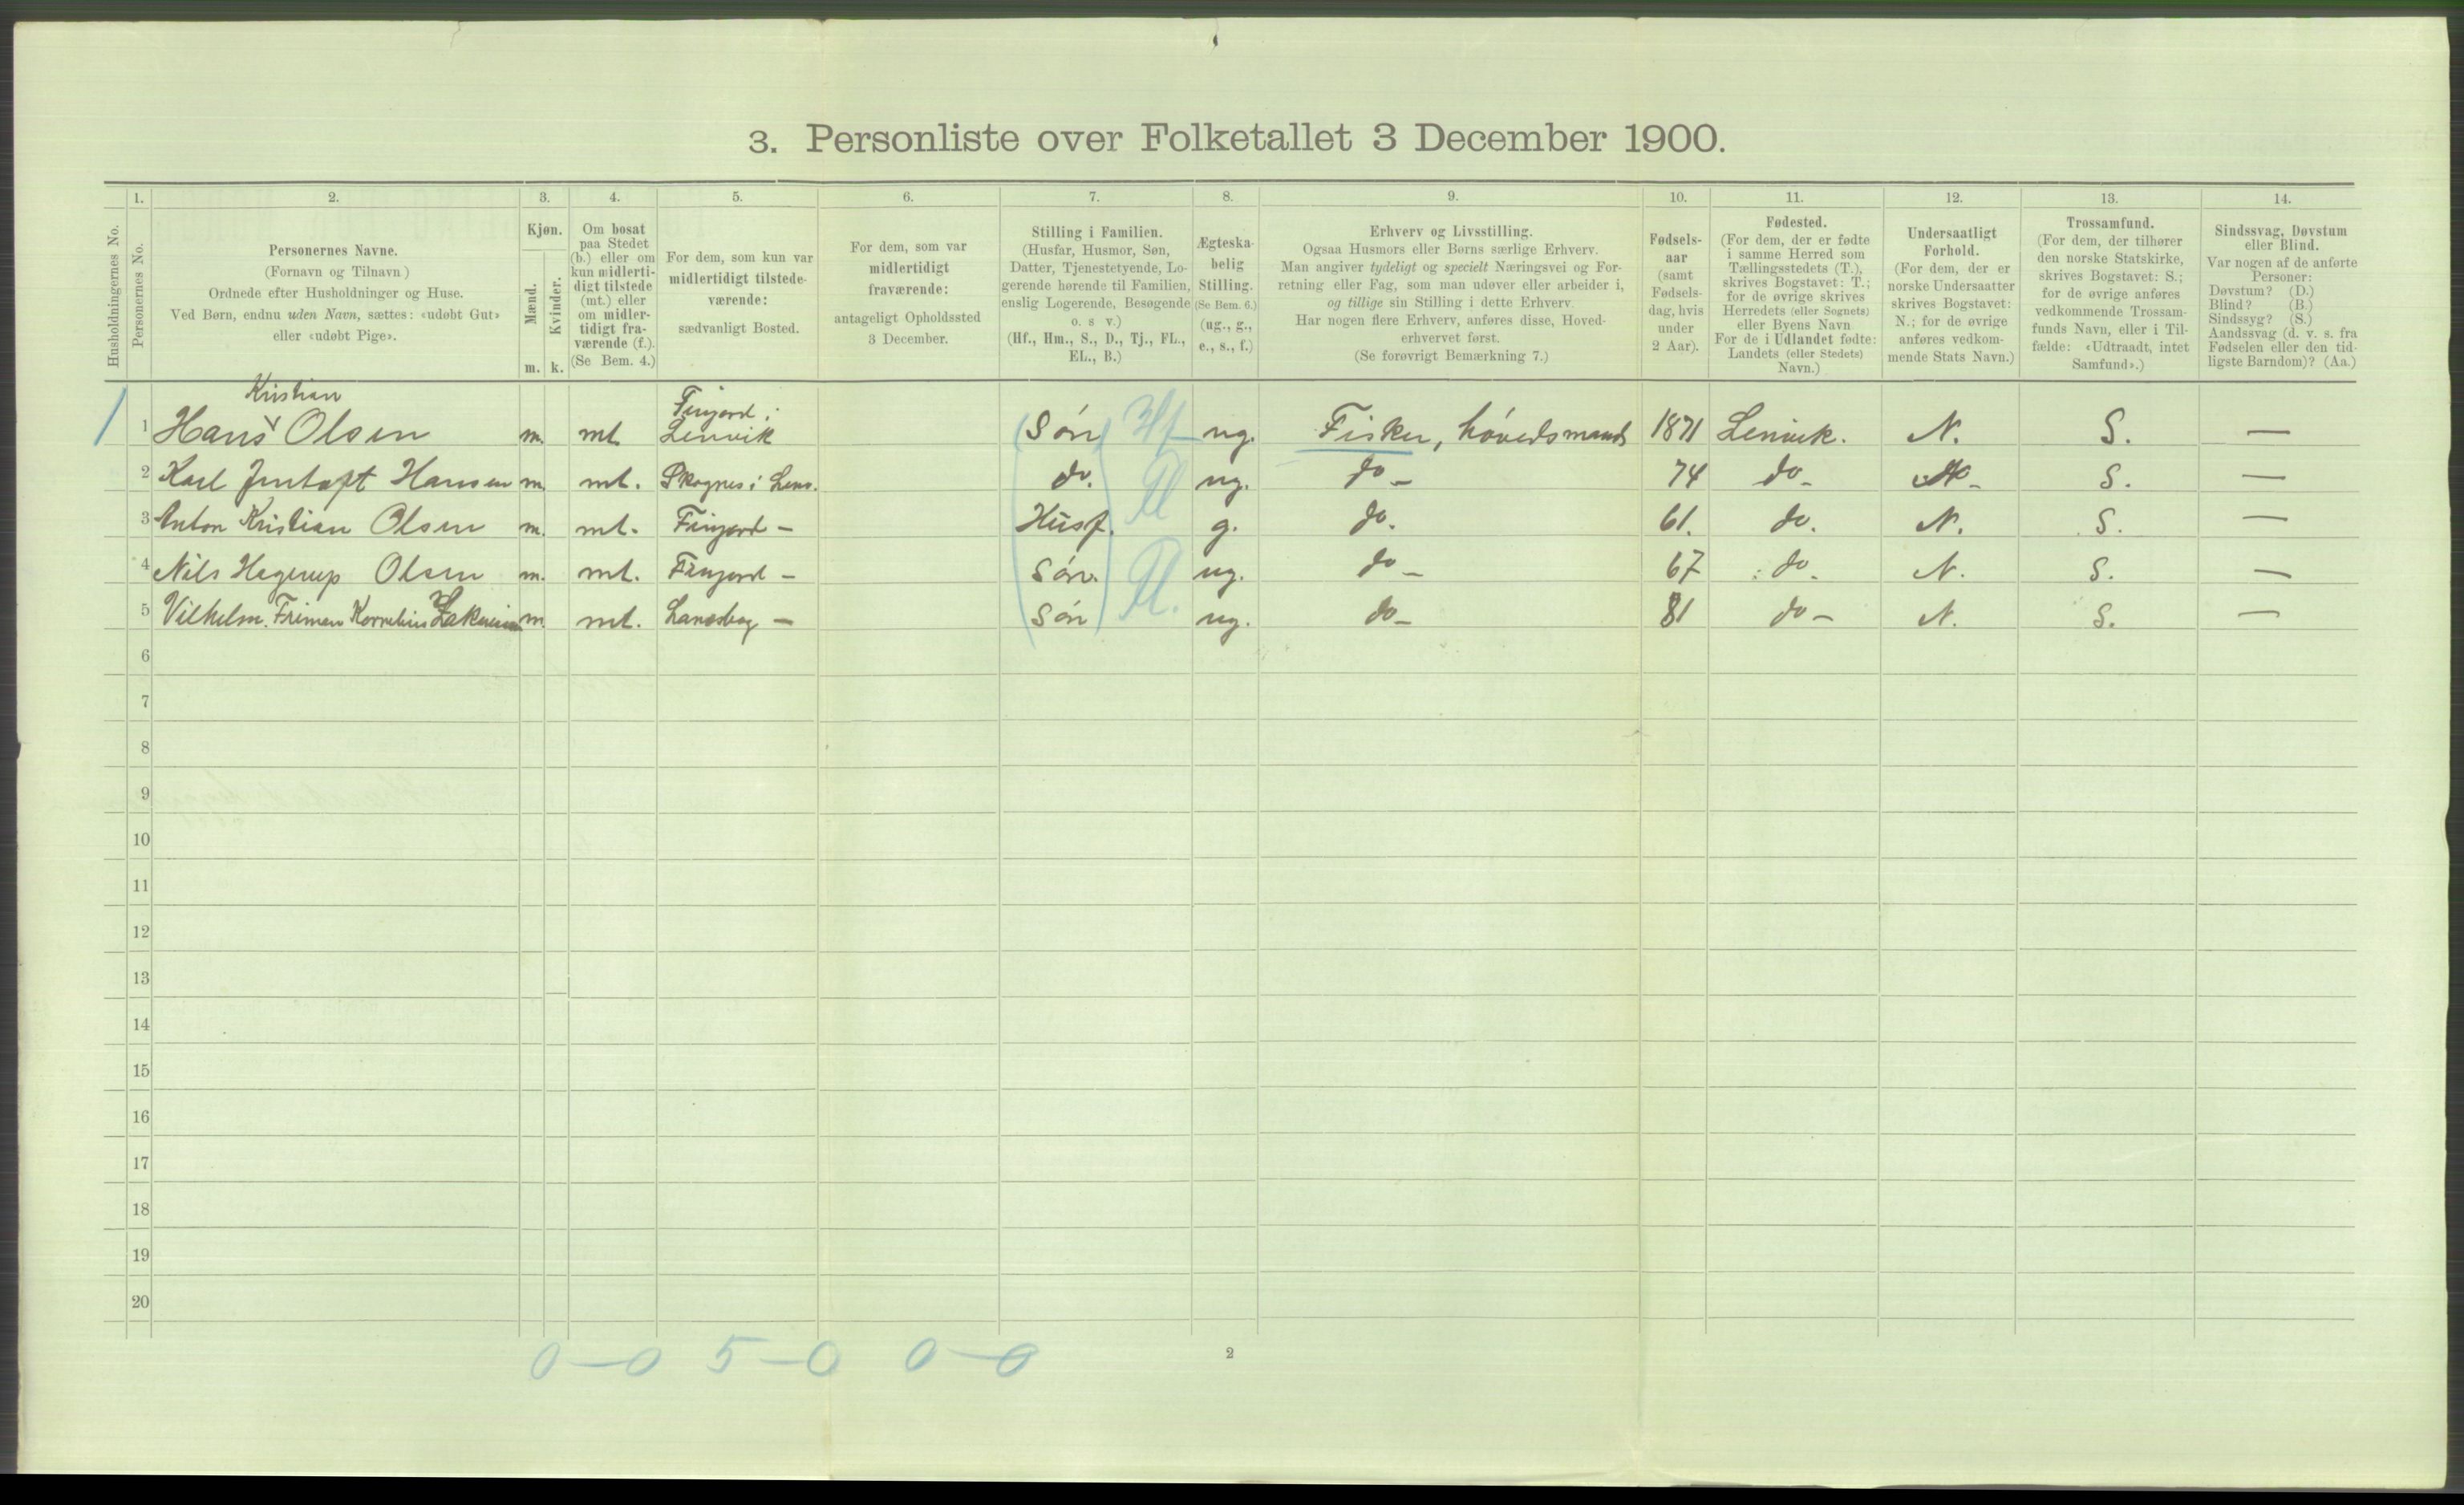 3. Personliste over Folketallet 3 December 1900.
1. 2. 3. 4. 5. 6. 7. 8. 9. 10. 11. 12. 13. 14.
Husholdningernes No.
Personernes No.
Personernes Navne.
(Fornavn og Tilnavn)
Ordnede efter Husholdninger og Huse.
Ved Børn, endnu uden Navn, sættes: «udøbt Gut»
eller «udøbt Pige».
Kjøn.
Mænd.
Kvinder.
m. k.
Om bosat
paa Stedet
(b.) eller om
kun midlerti-
digt tilstede
(mt.) eller
om midler-
tidigt fra-
værende (f.).
(Se Bem. 4.)
For dem, som kun var
midlertidigt tilstede-
værende:
sædvanligt Bosted.
For dem, som var
midlertidigt
fraværende:
antageligt Opholdssted
3 December.
Stilling i Familien.
(Husfar, Husmor, Søn,
Datter, Tjenestetyende, Lo-
gerende hørende til Familien,
enslig Logerende, Besøgende
o. s v.)
(Hf., Hm., S., D., Tj., FL.,
EL., B.)
Ægteska-
belig
Stilling.
(Se Bem. 6.)
(ug., g.,
e., s., f.)
Erhverv og Livsstilling.
Ogsaa Husmors eller Børns særlige Erhverv.
Man angiver tydeligt og specielt Næringsvei og For-
retning eller Fag, som man udøver eller arbeider i,
og tillige sin Stilling i dette Erhverv.
Har nogen flere Erhverv, anføres disse, Hoved-
erhvervet først.
(Se forøvrigt Bemærkning 7.)
Fødsels-
aar
(samt
Fødsels-
dag, hvis
under
2 Aar).
Fødested.
(For dem, der er fødte
i samme Herred som
Tællingsstedets (T.),
skrives Bogstavet: T.;
for de øvrige skrives
Herredets (eller Sognets)
eller Byens Navn
For de i Udlandet fødte:
Landets (eller Stedets)
Navn.)
Undersaatligt
Forhold.
(For dem, der er
norske Undersaatter
skrives Bogstavet:
N.; for de øvrige
anføres vedkom-
mende Stats Navn.)
Trossamfund.
(For dem, der tilhører
den norske Statskirke,
skrives Bogstavet: S.;
for de øvrige anføres
vedkommende Trossam-
funds Navn, eller i Til-
fælde: «Udtraadt, intet
Samfund».)
Sindssvag, Døvstum
eller Blind.
Var nogen af de anførte
Personer:
Døvstum? (D.)
Blind? (B.)
Sindssyg? (S.)
Aandssvag (d. v. s. fra
Fødselen eller den tid-
ligste Barndom)? (Aa.)
Kristian Finjord i
1 1 Hans Olsen m. mt Lenvik (Søn) Hf ug. Fisker, høvedsmand 1871 Lenvik. N. S. —
2 Karl Jentoft Hansen m. mt. Skognes i Lenv. do. Fl ug. do — 74 do — S. —
3 Anton Kristian Olsen m. mt. Finjord — Husf. g. do. 61. do. N. S. —
4 Nils Hagerup Olsen m. mt. Finjord — Søn. Fl. ug. do — 67 do. N. S. —
5 Vilhelm. Frimen Kornelius m. mt. — Søn ug. do — 81 do — N. S. —
6
7
8
9
10
11
12
13
14
15
16
17
18
19
20
0—0 5—0 0—0
2